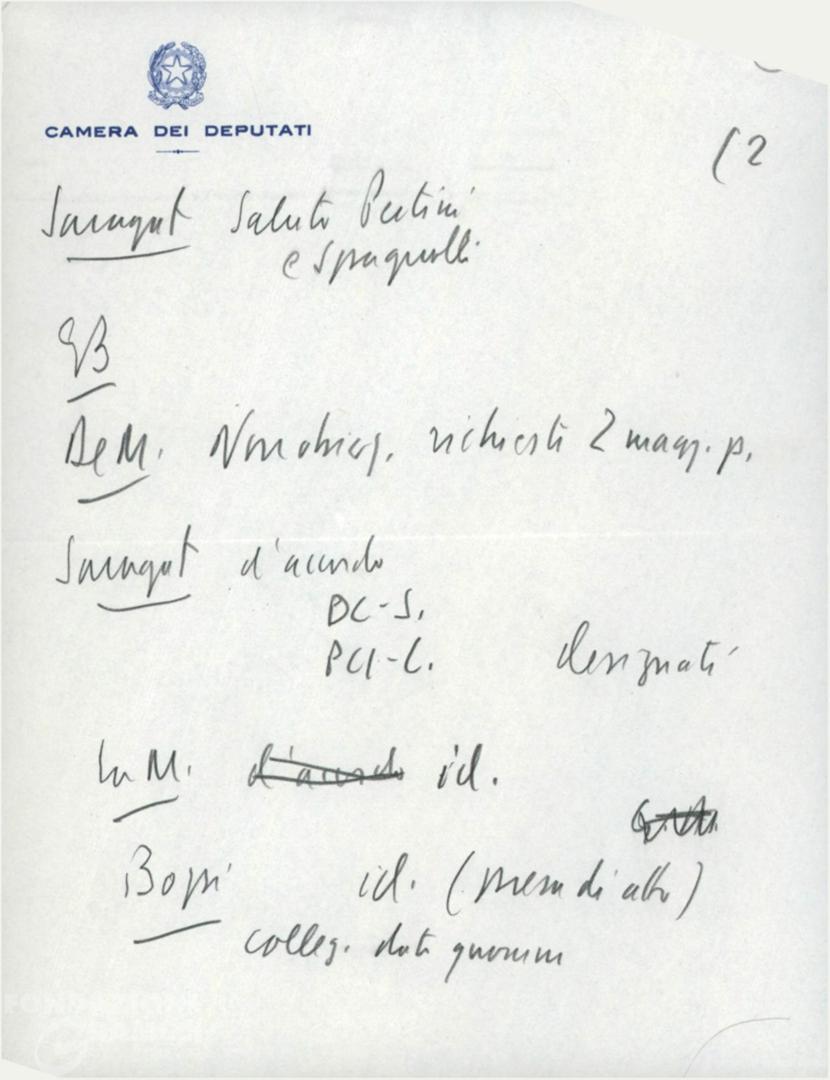 CAMERA DEI DEPUTATI
(2
Saragat Saluto Pertini
e Spagnolli
EB
De M. Non obiez. richiesti 2 magg. p.
Saragat d'accordo
DC-S.
PCI-C. designati
La M. d'accordo id.
Bozzi id. (presa di atto)
colleg. dati quorum